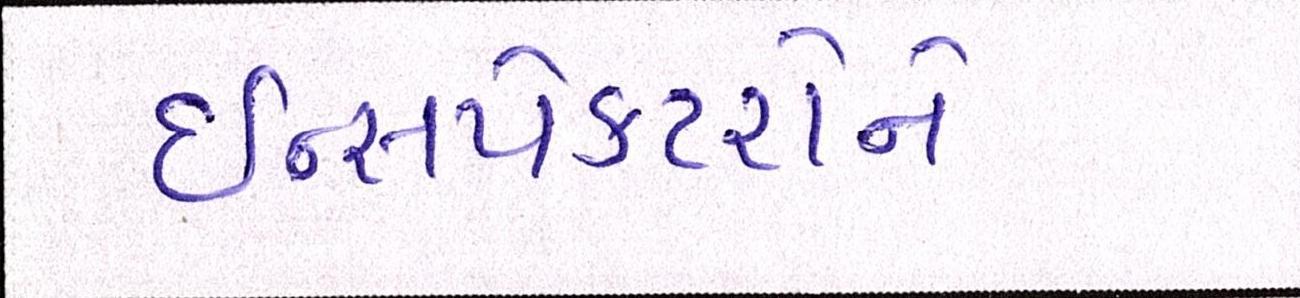 ઈન્સપેકટરોને